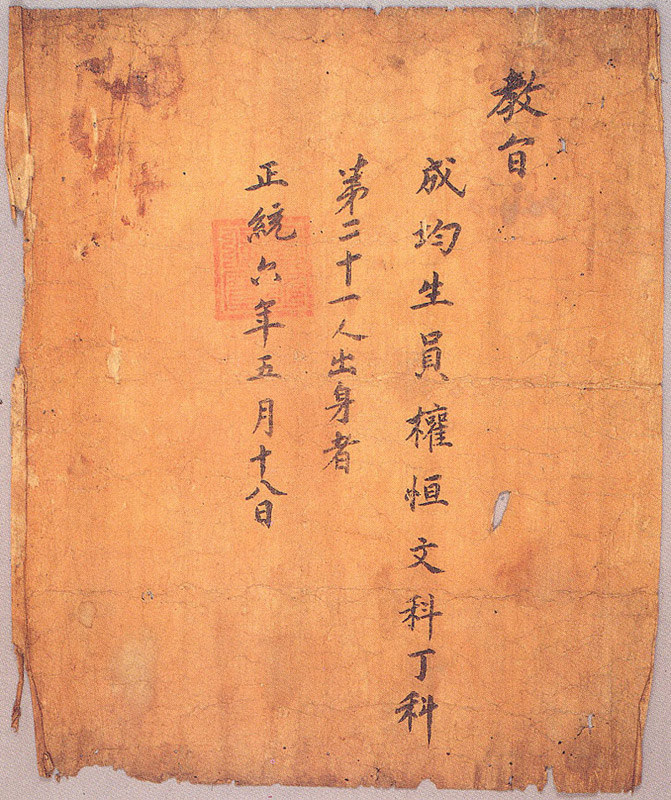 教旨
成均生員權恒文科丁科
第二十一人出身者
正統六年五月十八日